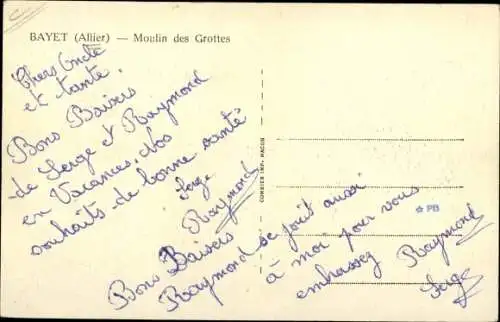 BAYET (Allier) — Moulin des Grottes
Chers Oncle
et tante.
Bons Baisers
de Serge et Raymond
en Vacances. Nos
souhaits de bonne santé
Serge
Raymond
Bons Baisers
Raymond se joint aussi
à moi pour vous
embrassez Raymond
Serge
COMBIER IMP. MACON
☆ PB